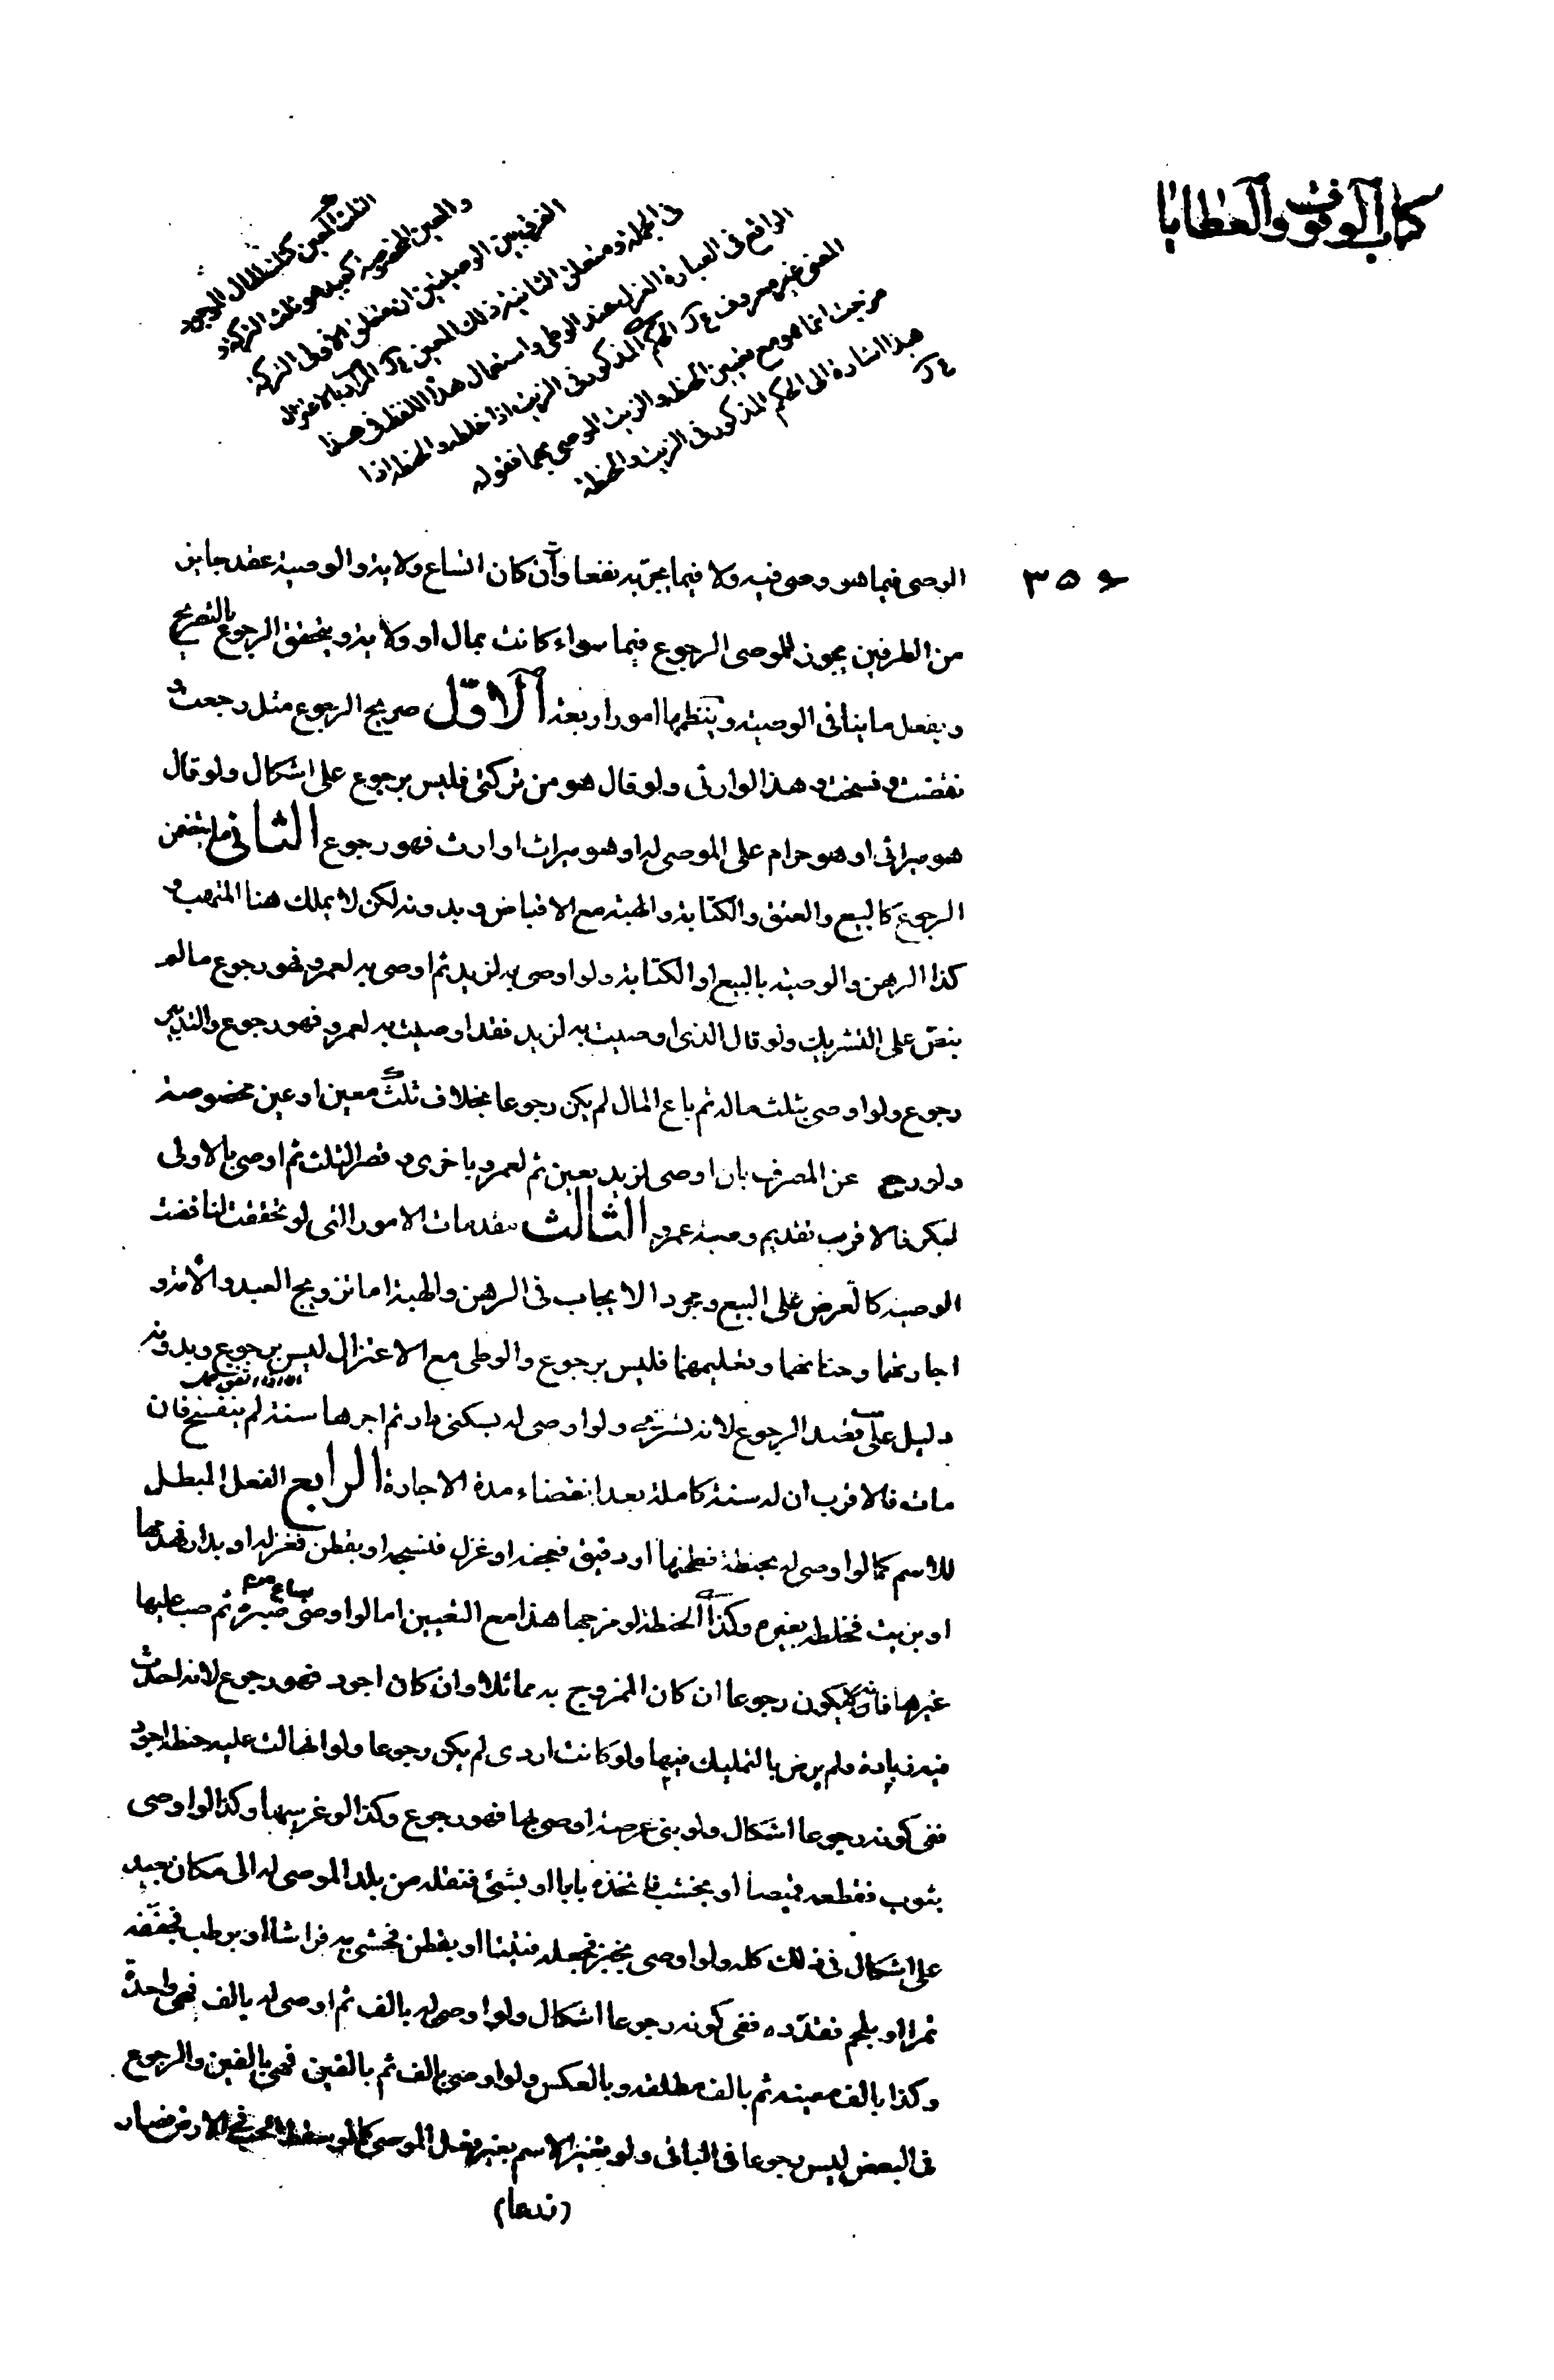 كتاب الوقوف والعطايا
٣٥٤
هذا اشارة الى الحكم المذكور فى الزيت والحنطة
مزجت انما هو مع تعيين الحنطة والزيت الموصى بهما فقوله
المعنى غير معروف الحكم المذكور فى الزيت اذا خلطه والحنطة اذا
الواقع فى العبارة العزل عند الوطى واستعمال هذا اللفظ فى هذا
فى الجملة ومتعلق الثانية ذلك المعين المراد بالاعتزال
الفرق بين الوصيتين ان متعلق الاولى التركة
والعين المخصوصة كعبد هو ثلث التركة او
الثلث المعين كثلث المال الموجود
الوصى فيما هو وصى فيه ولا فيما يجرّ به نفعا وان كان اتساع ولاية والوصية عقد جايز
من الطرفين يجوز للموصى الرجوع فيها سواء كانت بمال او ولاية ويتحقق الرجوع بالتصريح
وبفعل ما ينافى الوصية وينتظمها امور اربعة الاوّل صريح الرجوع مثل رجعت و
نقضت وفسخت وهذا لوارثى ولو قال هو من تركتى فليس برجوع على اشكال ولو قال
هو ميراثى او هو حرام على الموصى له او هو ميراث او ارث فهو رجوع الثانى ما يتضمن
الرجوع كالبيع والعتق والكتابة والهبة مع الاقباض وبدونه لكن لا يملك هنا المتهب و
كذا الرهن والوصية بالبيع او الكتابة ولو اوصى به لزيد ثم اوصى به لعمرو فهو رجوع ما لم
ينصّ على التشريك ولو قال الذى اوصيت به لزيد فقد اوصيت به لعمرو فهو رجوع والتدبير
رجوع ولو اوصى بثلث ماله ثم باع المال لم يكن رجوعا بخلاف ثلث معين او عين مخصوصة
ولو رجع عن المصرف بان اوصى لزيد بعين ثم لعمرو باخرى وقصر الثلث ثم اوصى بالاولى
لبكر فالاقرب تقديم وصية عمرو الثالث مقدمات الامور التى لو تحققت لناقضت
الوصية كالعرض على البيع ومجرد الايجاب فى الرهن والهبة اما تزويج العبد والامة و
اجارتهما وختانهما وتعليمهما فليس برجوع والوطى مع الاعتزال ليس برجوع وبدونه
دليل على قصد الرجوع لانه تسرّى ولو اوصى له بسكنى دار ثم اجرها سنة لم ينفسخ فان
مات فالاقرب ان له سنة كاملة بعد انقضاء مدة الاجارة الرابع الفعل المبطل
للاسم كما لو اوصى له بحنطة فطحنها او دقيق فعجنه او غزل فنسجه او بقطن فغزله او بدار فهدمها
او بزيت فخلطه بغيره وكذا الحنطة لو مزجها هذا مع التعيين اما لو اوصى بصاع من صبرة ثم صب عليها
غيرها فانه لا يكون رجوعا ان كان الممزوج به مماثلا وان كان اجود فهو رجوع لانه احدث
فيه زيادة ولم يرض بالتمليك فيها ولو كانت اردى لم يكن رجوعا ولو انهالت عليه حنطة اجود
ففى كونه رجوعا اشكال ولو بنى عرصة اوصى بها فهو رجوع وكذا لو غرسها وكذا لو اوصى
بثوب فقطعه قميصا او بخشب فاتخذه بابا او بشئ فنقله من بلد الموصى له الى مكان بعيد
على اشكال فى ذلك كله ولو اوصى بخبز فجعله فتيتا او بقطن فحشى به فراشا او برطب فجففه
تمرا او بلحم فقدّده ففى كونه رجوعا اشكال ولو اوصى له بالف ثم اوصى له بالف فهى واحدة
وكذا بالف معينة ثم بالف مطلقة وبالعكس ولو اوصى بالف ثم بالفين فهى بالفين والرجوع
فى البعض ليس رجوعا فى الباقى ولو تغير الاسم بغير فعل الموصى كما لو سقط الحب فى الارض فصار
(زرعا)